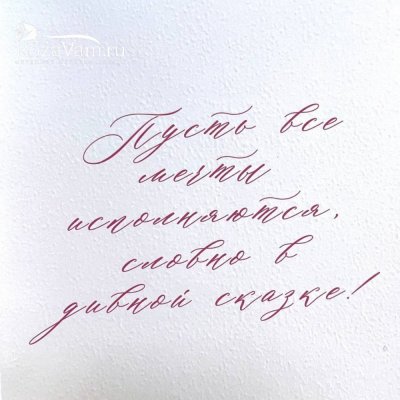 RozaVam.ru
Пусть все
мечты
исполняются,
словно в
дивной сказке!